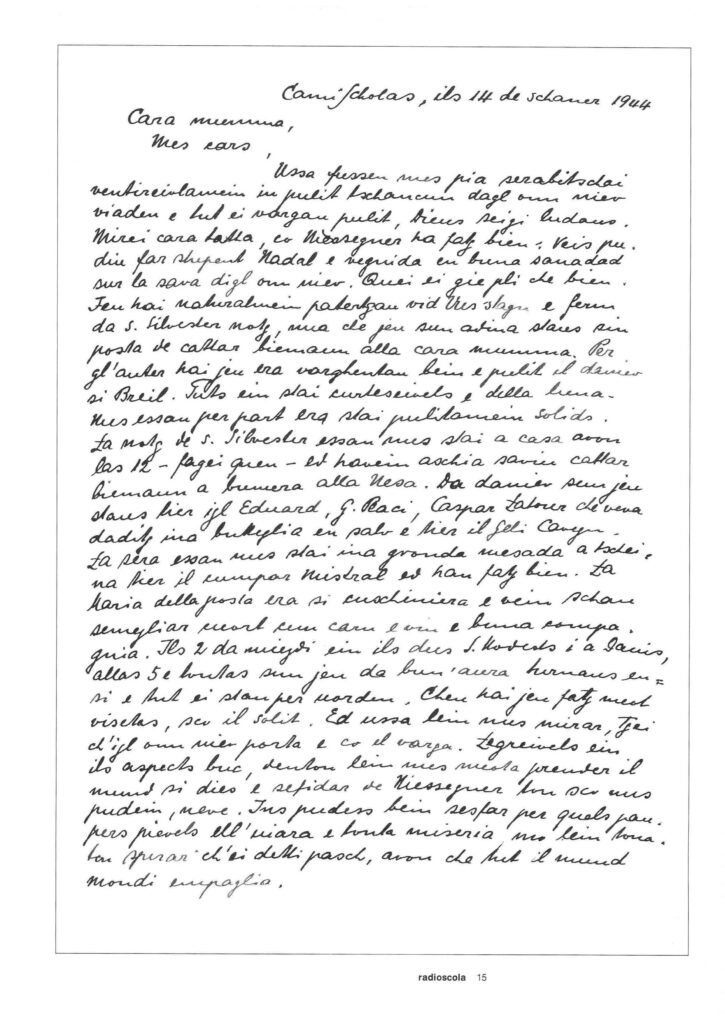 Camischolas, ils 14 de schaner 1944
Cara mumma,
Mes cars,
Ussa fussen nus pia serabitschai
ventireivlamein in pulit tschancun dagl onn niev
viaden e tut ei vargau pulit, Dieus seigi ludaus.
Mirei cara tatta, co Niessegner ha fatg bien: Veis pu-
diu far stupent Nadal e vegnida en buna sanadad
sur la sava digl onn niev. Quei ei gie pli che bien.
Jeu hai naturalmein patertgau vid Vies stgn e ferm
da s. Silvester notg, mo che jeu sun adina staus sin
posta de cattar biemaun alla cara mumma. Per
gl'auter hai jeu era varghentau bein e pulit il daniev
si Breil. Tuts ein stai curteseivels e della luna.
Nus essan per part era stai pulitamein solids.
La notg de s. Silvester essan nus stai a casa avon
las 12 - fagei quen - ed havein aschia saviu cattar
biemaun a bunura alla Nesa. Da daniev sun jeu
staus tier igl Eduard, G. Placi, Caspar Latour che veva
daditg ina buteglia en salv e tier il Geli Cavegn.
La sera essan nus stai ina gronda mesada a tschei-
na tier il cumpar Mistral ed han fatg bien. La
Maria della posta era si cuschiniera e vein schau
semegliar uort cun carn e vin e buna compa-
gnia. Ils 2 da miezdi ein ils dus S. i a Danis,
allas 5 e tontas sun jeu da bun'aura turnaus en=
si e tut ei stau per uorden. Cheu hai jeu fatg meot
visetas, sco il solit. Ed ussa lein nus mirar, tgei
ch'igl onn niev porta e co el varga. Legreivels ein
ils aspects buc, denton lein nus meota prender il
mund si dies e sefidar de Niessegner ton sco nus
pudein, neve. Ins pudess bein sesfar per quels pau-
pers pievels ell'uiara e tonta miseria, mo lein tona-
ton sperar ch'ei detti pasch, avon che tut il mund
mondi empaglia.
radioscola 15